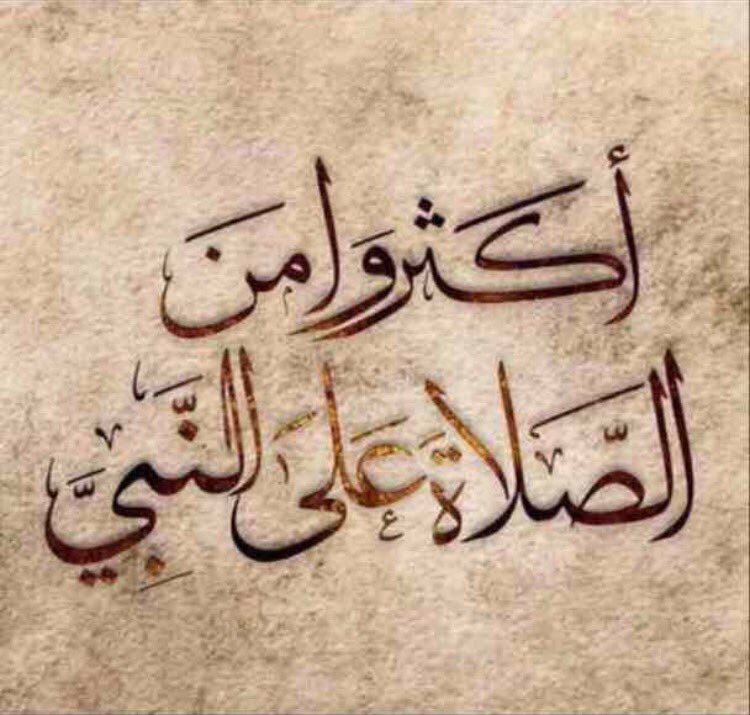 أكثروا منَ
الصَّلاةَ علَى النَّبِيَّ